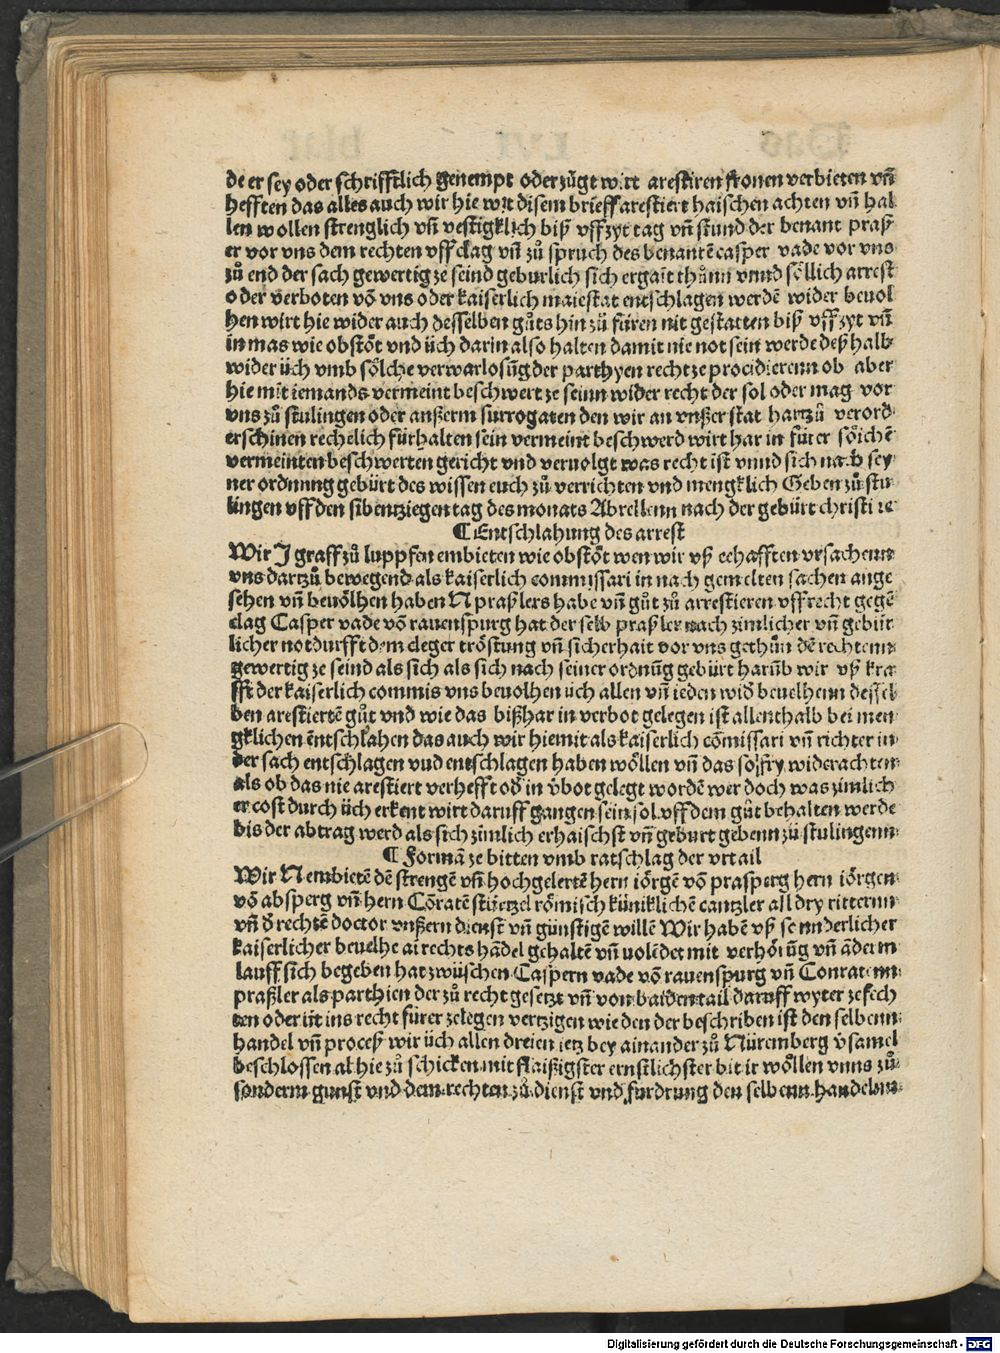 de er sey oder schrifftlich genempt oder zügt wirt arestiren fronen verbieten vn̄
hefften das alles auch wir hie mit disem brieff arestiert haischen achten vn̄ hal
len wollen strenglich vn̄ vestigklich biß vff zyt tag vn̄ stund der benant praß
er vor vns dem rechten vff clag vn̄ zů spruch des benantē casper vade vor vns
zů end der sach gewertig ze seind geburlich sich ergait thůnn vnnd sőllich arrest
oder verboten vō vns oder kaiserlich maiestat entschlagen werdē wider beuol
hen wirt hie wider auch desselben gůts hin zů füren nit gestatten biß vff zyt vn̄
in mas wie obstőt vnd üch darin also halten damit nie not sein werde deß halb
wider üch vmb sőlche verwarlosūg der parthyen recht ze procidierenn ob aber
hie mit iemands vermeint beschwert ze seinn wider recht der sol oder mag vor
vns zů stulingen oder anßerm surrogaten den wir an vnßer stat hartzů verord
erschinen rechelich fürhalten sein vermeint beschwerd wirt har in fürer sőichē
vermeinten beschwerten gericht vnd veruolgt was recht ist vnnd sich nach sey
ner ordnung gebürt des wissen euch zů verrichten vnd mengklich Geben zů stu
lingen vff den sibentziegen tag des monats Abrellenn nach der gebürt christi ⁊c
¶ Entschlahung des arrest
Wir J graff zů luppfen embieten wie obstőt wen wir vß eehafften vrsachenn
vns dartzů bewegend als kaiserlich commissari in nach gemelten sachen ange
sehen vn̄ beuőlhen haben N praßlers habe vn̄ gůt zů arrestieren vff recht gegē
clag Casper vade vō rauenspurg hat der selb praßler nach zimlicher vn̄ gebür
licher notdurfft dem cleger trőstung vn̄ sicherhait vor vns gethůn dē rechtenn
gewertig ze seind als sich als sich nach seiner ordnūg gebürt harūb wir vß kra
fft der kaiserlich commis vns beuolhen üch allen vn̄ ieden wid beuelhenn dessel
ben arestiertē gůt vnd wie das bißhar in verbot gelegen ist allenthalb bei men
gklichen entschlahen das auch wir hiemit als kaiserlich cōmissari vn̄ richter in
der sach entschlagen vnd entschlagen haben wőllen vn̄ das so fry widerachten
als ob das nie arestiert verhefft od in vbot gelegt wordē wer doch was zimlich
er cost durch üch erkent wirt daruff gangen sein sol vff dem gůt behalten werde
bis der abtrag werd als sich zimlich erhaischst vn̄ geburt gebenn zů stulingenn
¶ Formā ze bitten vmb ratschlag der vrtail
Wir N embietē dē strengē vn̄ hochgelertē hern iőrgē vō prasperg hern iőrgen
vō absperg vn̄ hern Cōratē stürtzel rőmisch küniklichē cantzler all dry ritternn
vn̄ d rechtē doctor vnßern dienst vn̄ günstigē willē Wir habē vß sennderlicher
kaiserlicher beuelhe ai rechts hādel gehaltē vn̄ uolēdet mit verhőrūg vn̄ āderm
lauff sich begeben hat zwüschen Caspern vade vō rauenspurg vn̄ Conratenn
praßler als parthien der zů recht gesetzt vn̄ von baiden tail daruff wyter ze fech
ten oder üt ins recht fürer zelegen vertzigen wie den der beschriben ist den selbenn
handel vn̄ proceß wir üch allen dreien ietz bey ainander zů Nüremberg vsamel
beschlossen al hie zů schicken mit flaißigster ernstlichster bit ir wőllen vnns zů
sonderm gunst vnd dem rechten zů dienst vnd furdrung den selbenn handelnn
Digitalisierung gefördert durch die Deutsche Forschungsgemeinschaft - DFG